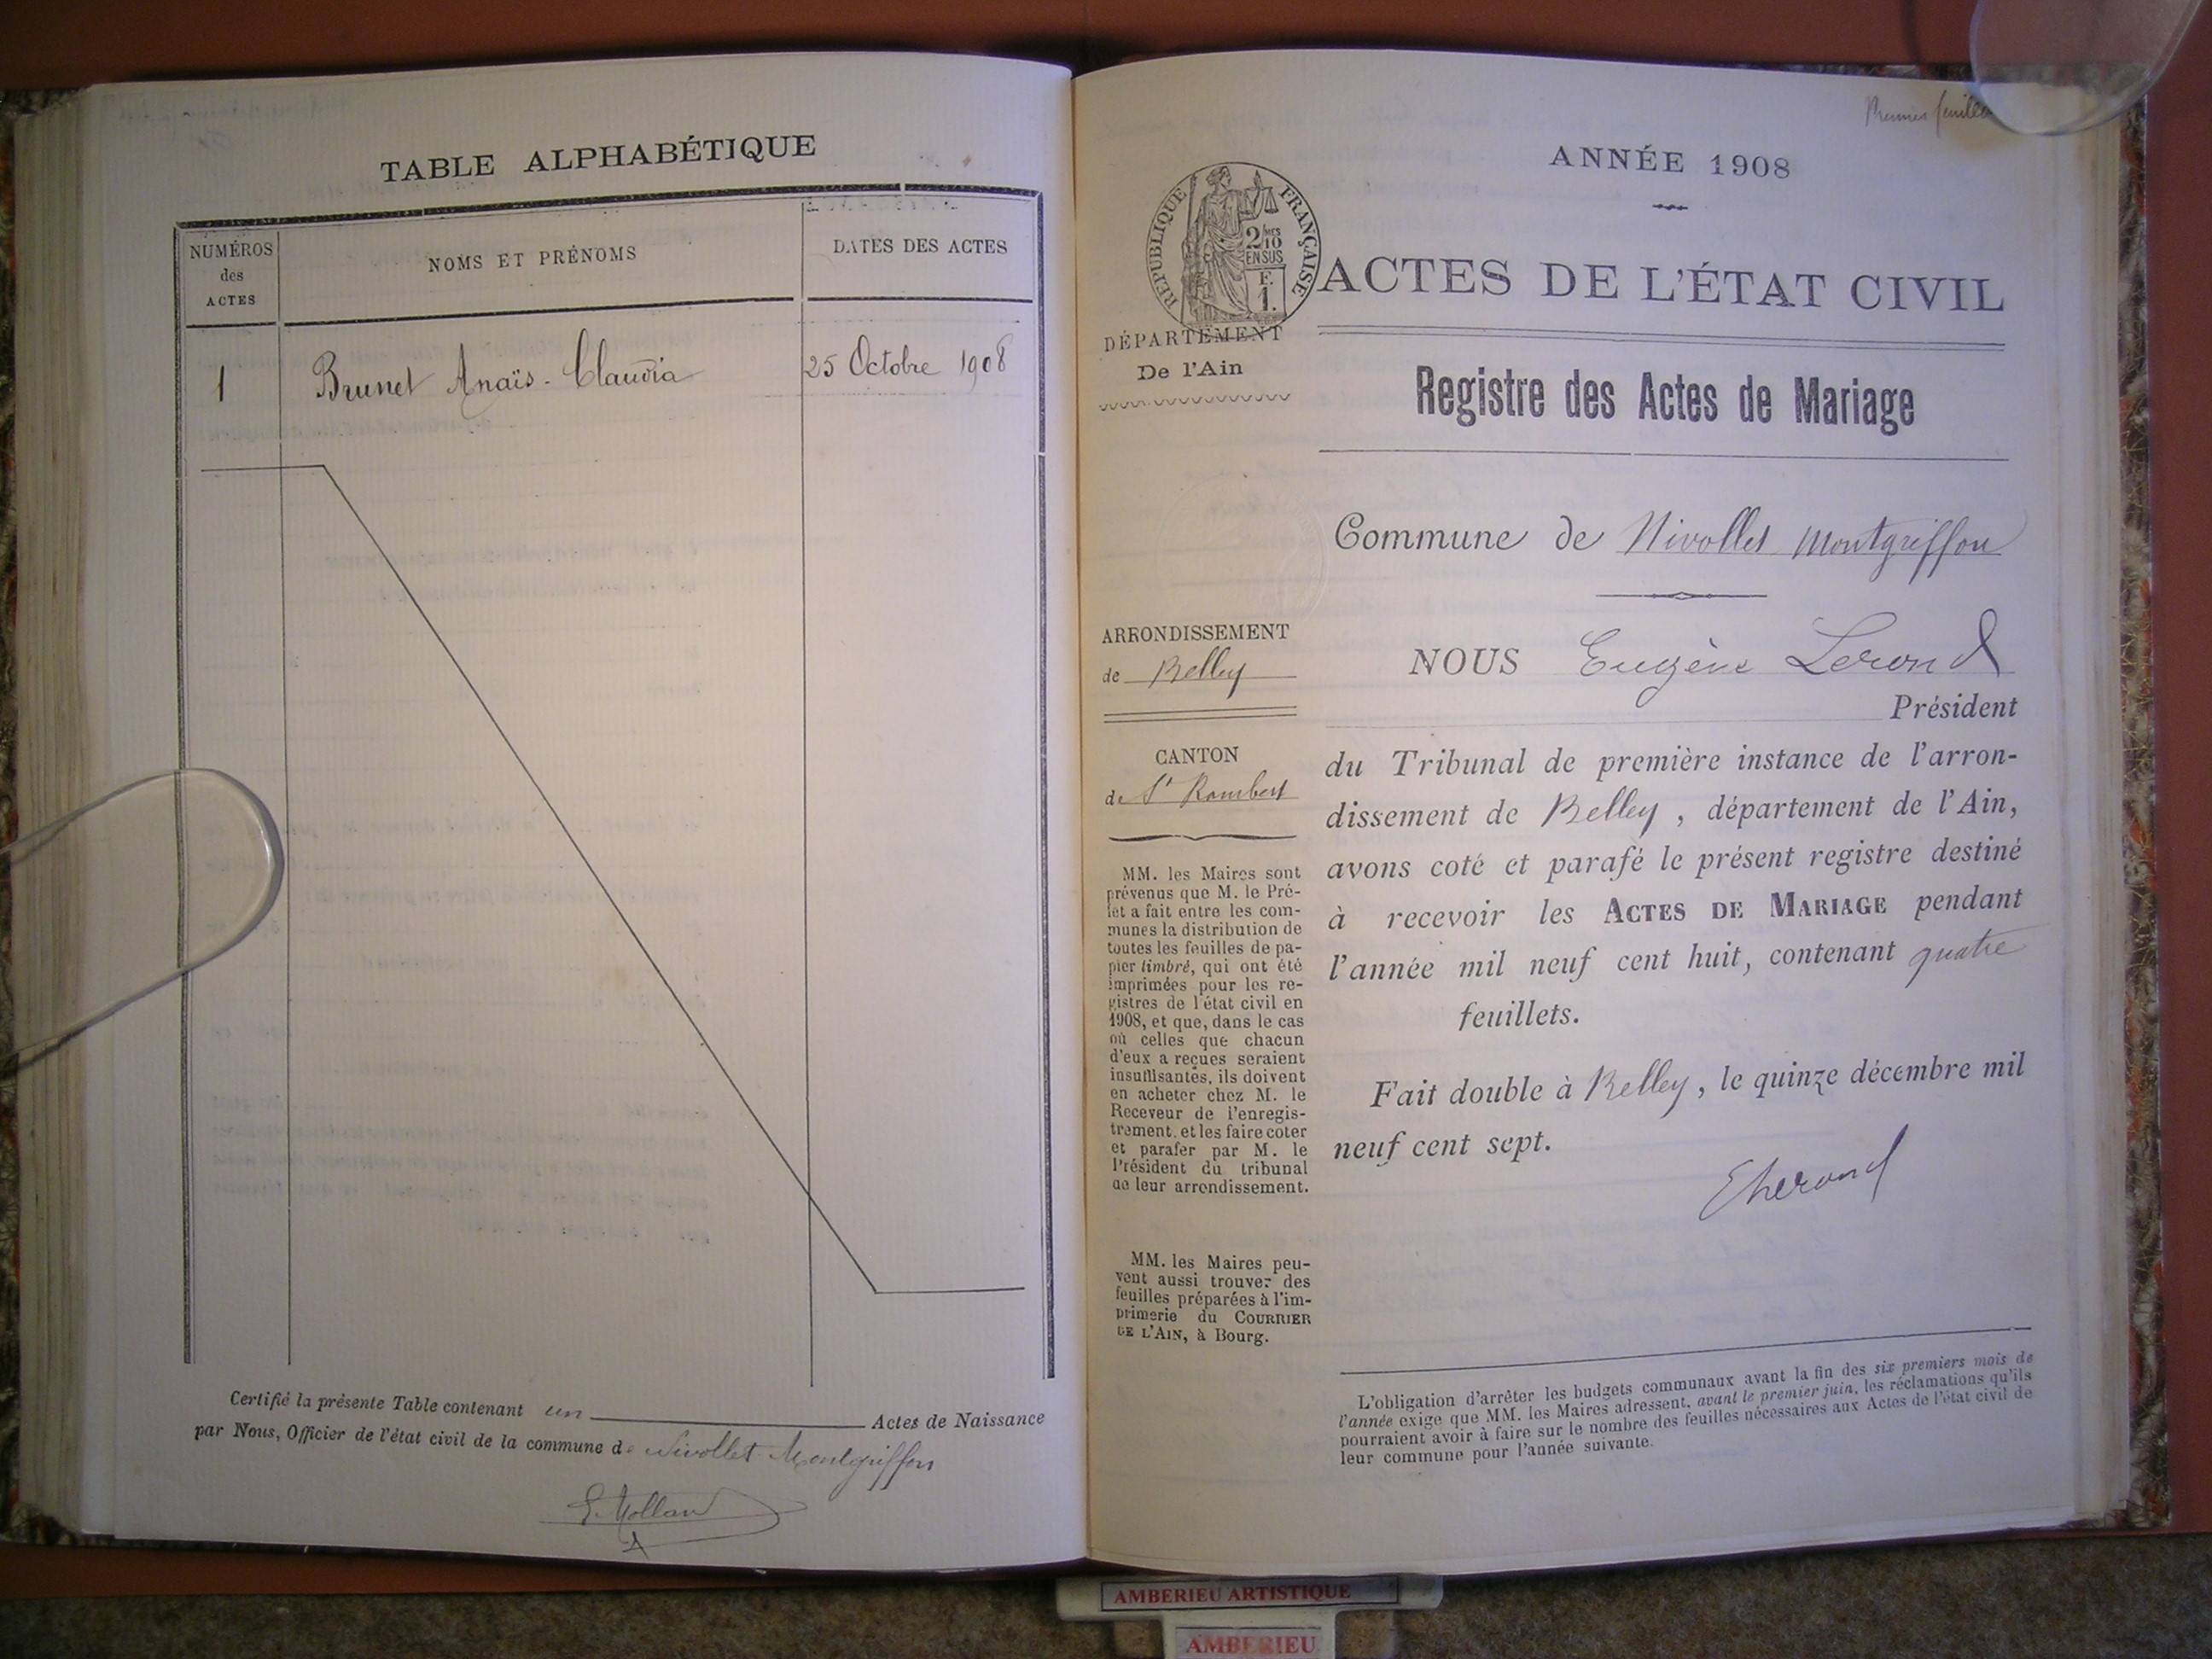 TABLE ALPHABÉTIQUE
NUMÉROS
des
ACTES
NOMS ET PRÉNOMS
DATES DES ACTES
1 Brunet Anaïs - Claudia 25 Octobre 1908
Certifié la présente Table contenant un Actes de Naissance
par Nous, Officier de l'état civil de la commune de Nivollet Montgriffon
Premier feuillet
ANNÉE 1908
RÉPUBLIQUE FRANÇAISE
2/10 MES
EN SUS
F.
1.
ACTES DE L'ÉTAT CIVIL
DÉPARTEMENT
De l'Ain
Registre des Actes de Mariage
Commune de Nivollet Montgriffon
ARRONDISSEMENT
de Belley
CANTON
de St Rambert
MM. les Maires sont
prévenus que M. le Pré-
fet a fait entre les com-
munes la distribution de
toutes les feuilles de pa-
pier timbré, qui ont été
imprimées pour les re-
gistres de l'état civil en
1908, et que, dans le cas
où celles que chacun
d'eux a reçues seraient
insuffisantes, ils doivent
en acheter chez M. le
Receveur de l'enregis-
trement, et les faire coter
et parafer par M. le
Président du tribunal
de leur arrondissement.
MM. les Maires peu-
vent aussi trouver des
feuilles préparées à l'im-
primerie du COURRIER
DE L'AIN, à Bourg.
NOUS Eugène Lerond
Président
du Tribunal de première instance de l'arron-
dissement de Belley, département de l'Ain,
avons coté et parafé le présent registre destiné
à recevoir les ACTES DE MARIAGE pendant
l'année mil neuf cent huit, contenant quatre
feuillets.
Fait double à Belley, le quinze décembre mil
neuf cent sept.
L'obligation d'arrêter les budgets communaux avant la fin des six premiers mois de
l'année exige que MM. les Maires adressent, avant le premier juin, les réclamations qu'ils
pourraient avoir à faire sur le nombre des feuilles nécessaires aux Actes de l'état civil de
leur commune pour l'année suivante.
AMBERIEU ARTISTIQUE
AMBERIEU